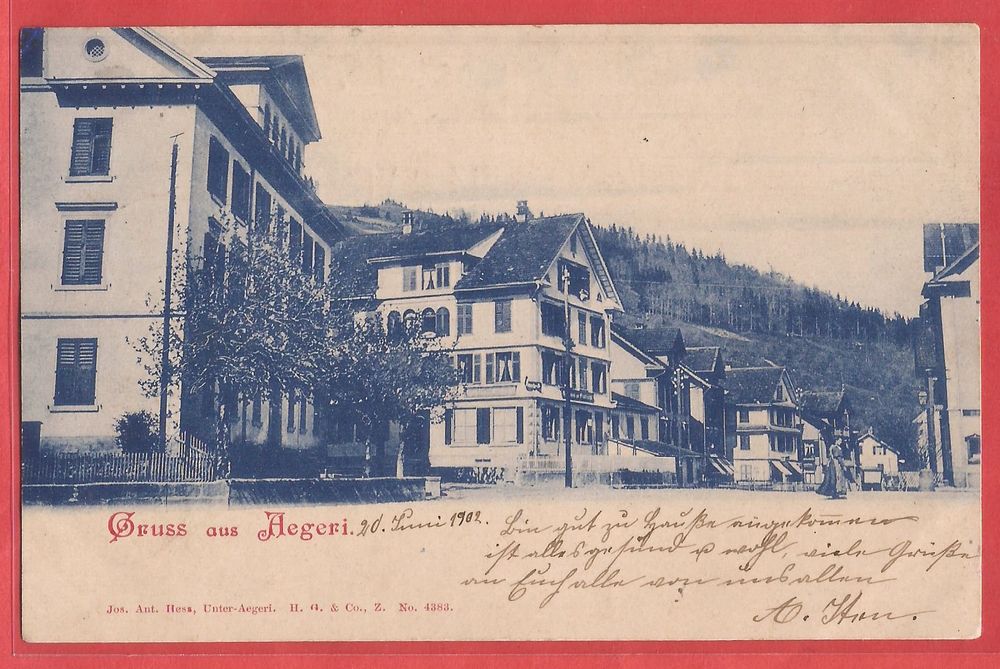 Gruss aus Aegeri. 20. Juni 1902. Bin gut zu Hauße angekom̅en
ist alles gesund u wohl, viele Grüße
an Euch alle von uns allen
A. Iten.
Jos. Ant. Hess, Unter-Aegeri. H. G. & Co., Z. No. 4383.